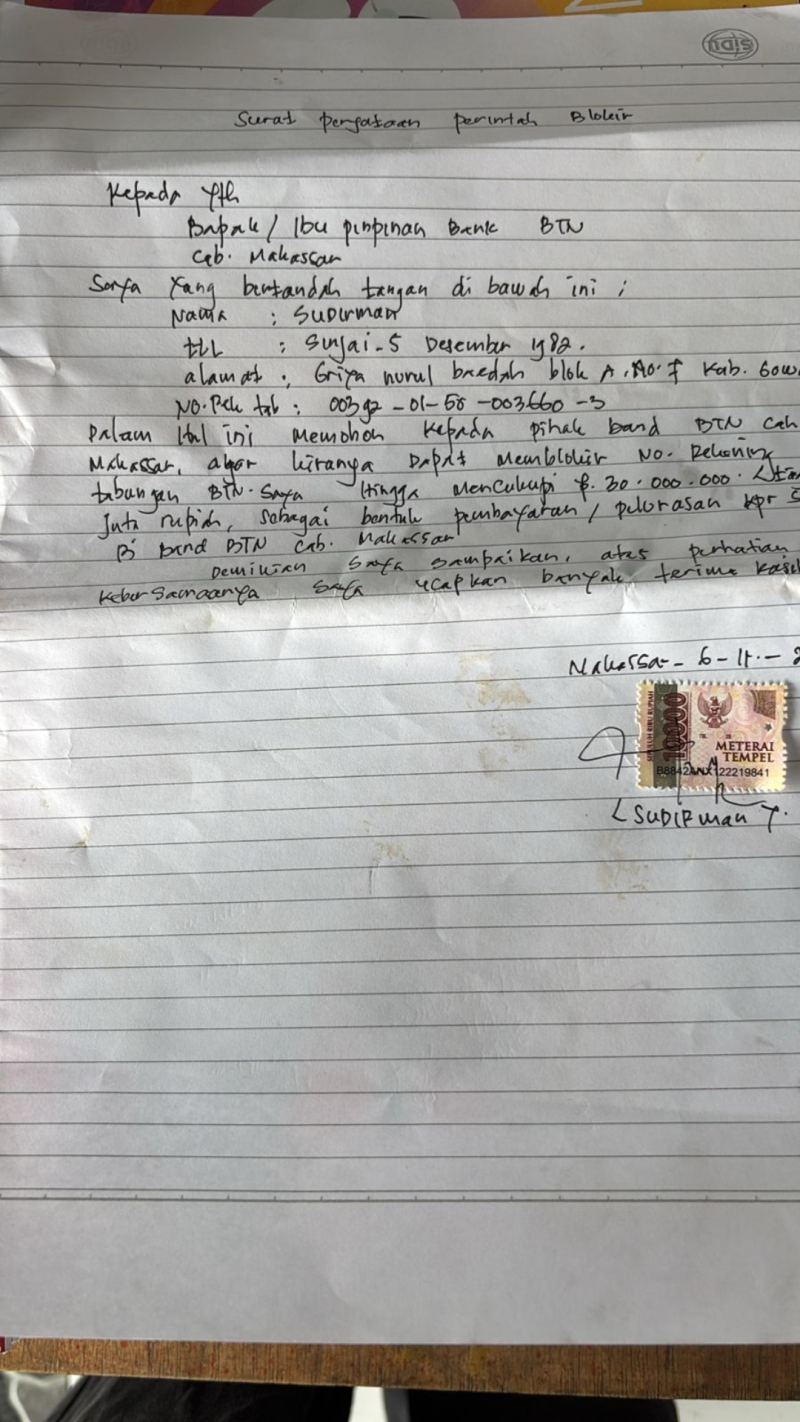 SIDU
Surat pengataan perintah Blokir
Kepada Yth
Bapak / Ibu pinpinan Bank BTN
Cab. Makassar
Saya Yang bertandah tangan di bawah ini ;
Nama : SUDIRMAN
ttL : Sinjai-5 Desember 1982.
alamat : Griya nurul baedah blok A. No. 7 Kab. Gow
No. Rek tab : 00392-01-50-003660-3
Dalam Hal ini Memohon Kepada pihak band BTN Cab
Makassar, agar kiranya Dapat Memblokir No. Rekening
tabungan BTN. Saya Hingga Mencukupi Rp. 30.000.000.
Juta rupiah, sebagai bentuk pembayaran / pelunasan KPR
Di Band BTN Cab. Makassar
Demikian Saya sampaikan, atas perhatian
Kebersamaanya Saya ucapkan banyak terima Kasih
Makassar - 6 - 11 -
SEPULUH RIBU RUPIAH
10000
METERAI
TEMPEL
B8842ANX122219841
( SUDIRMAN T.